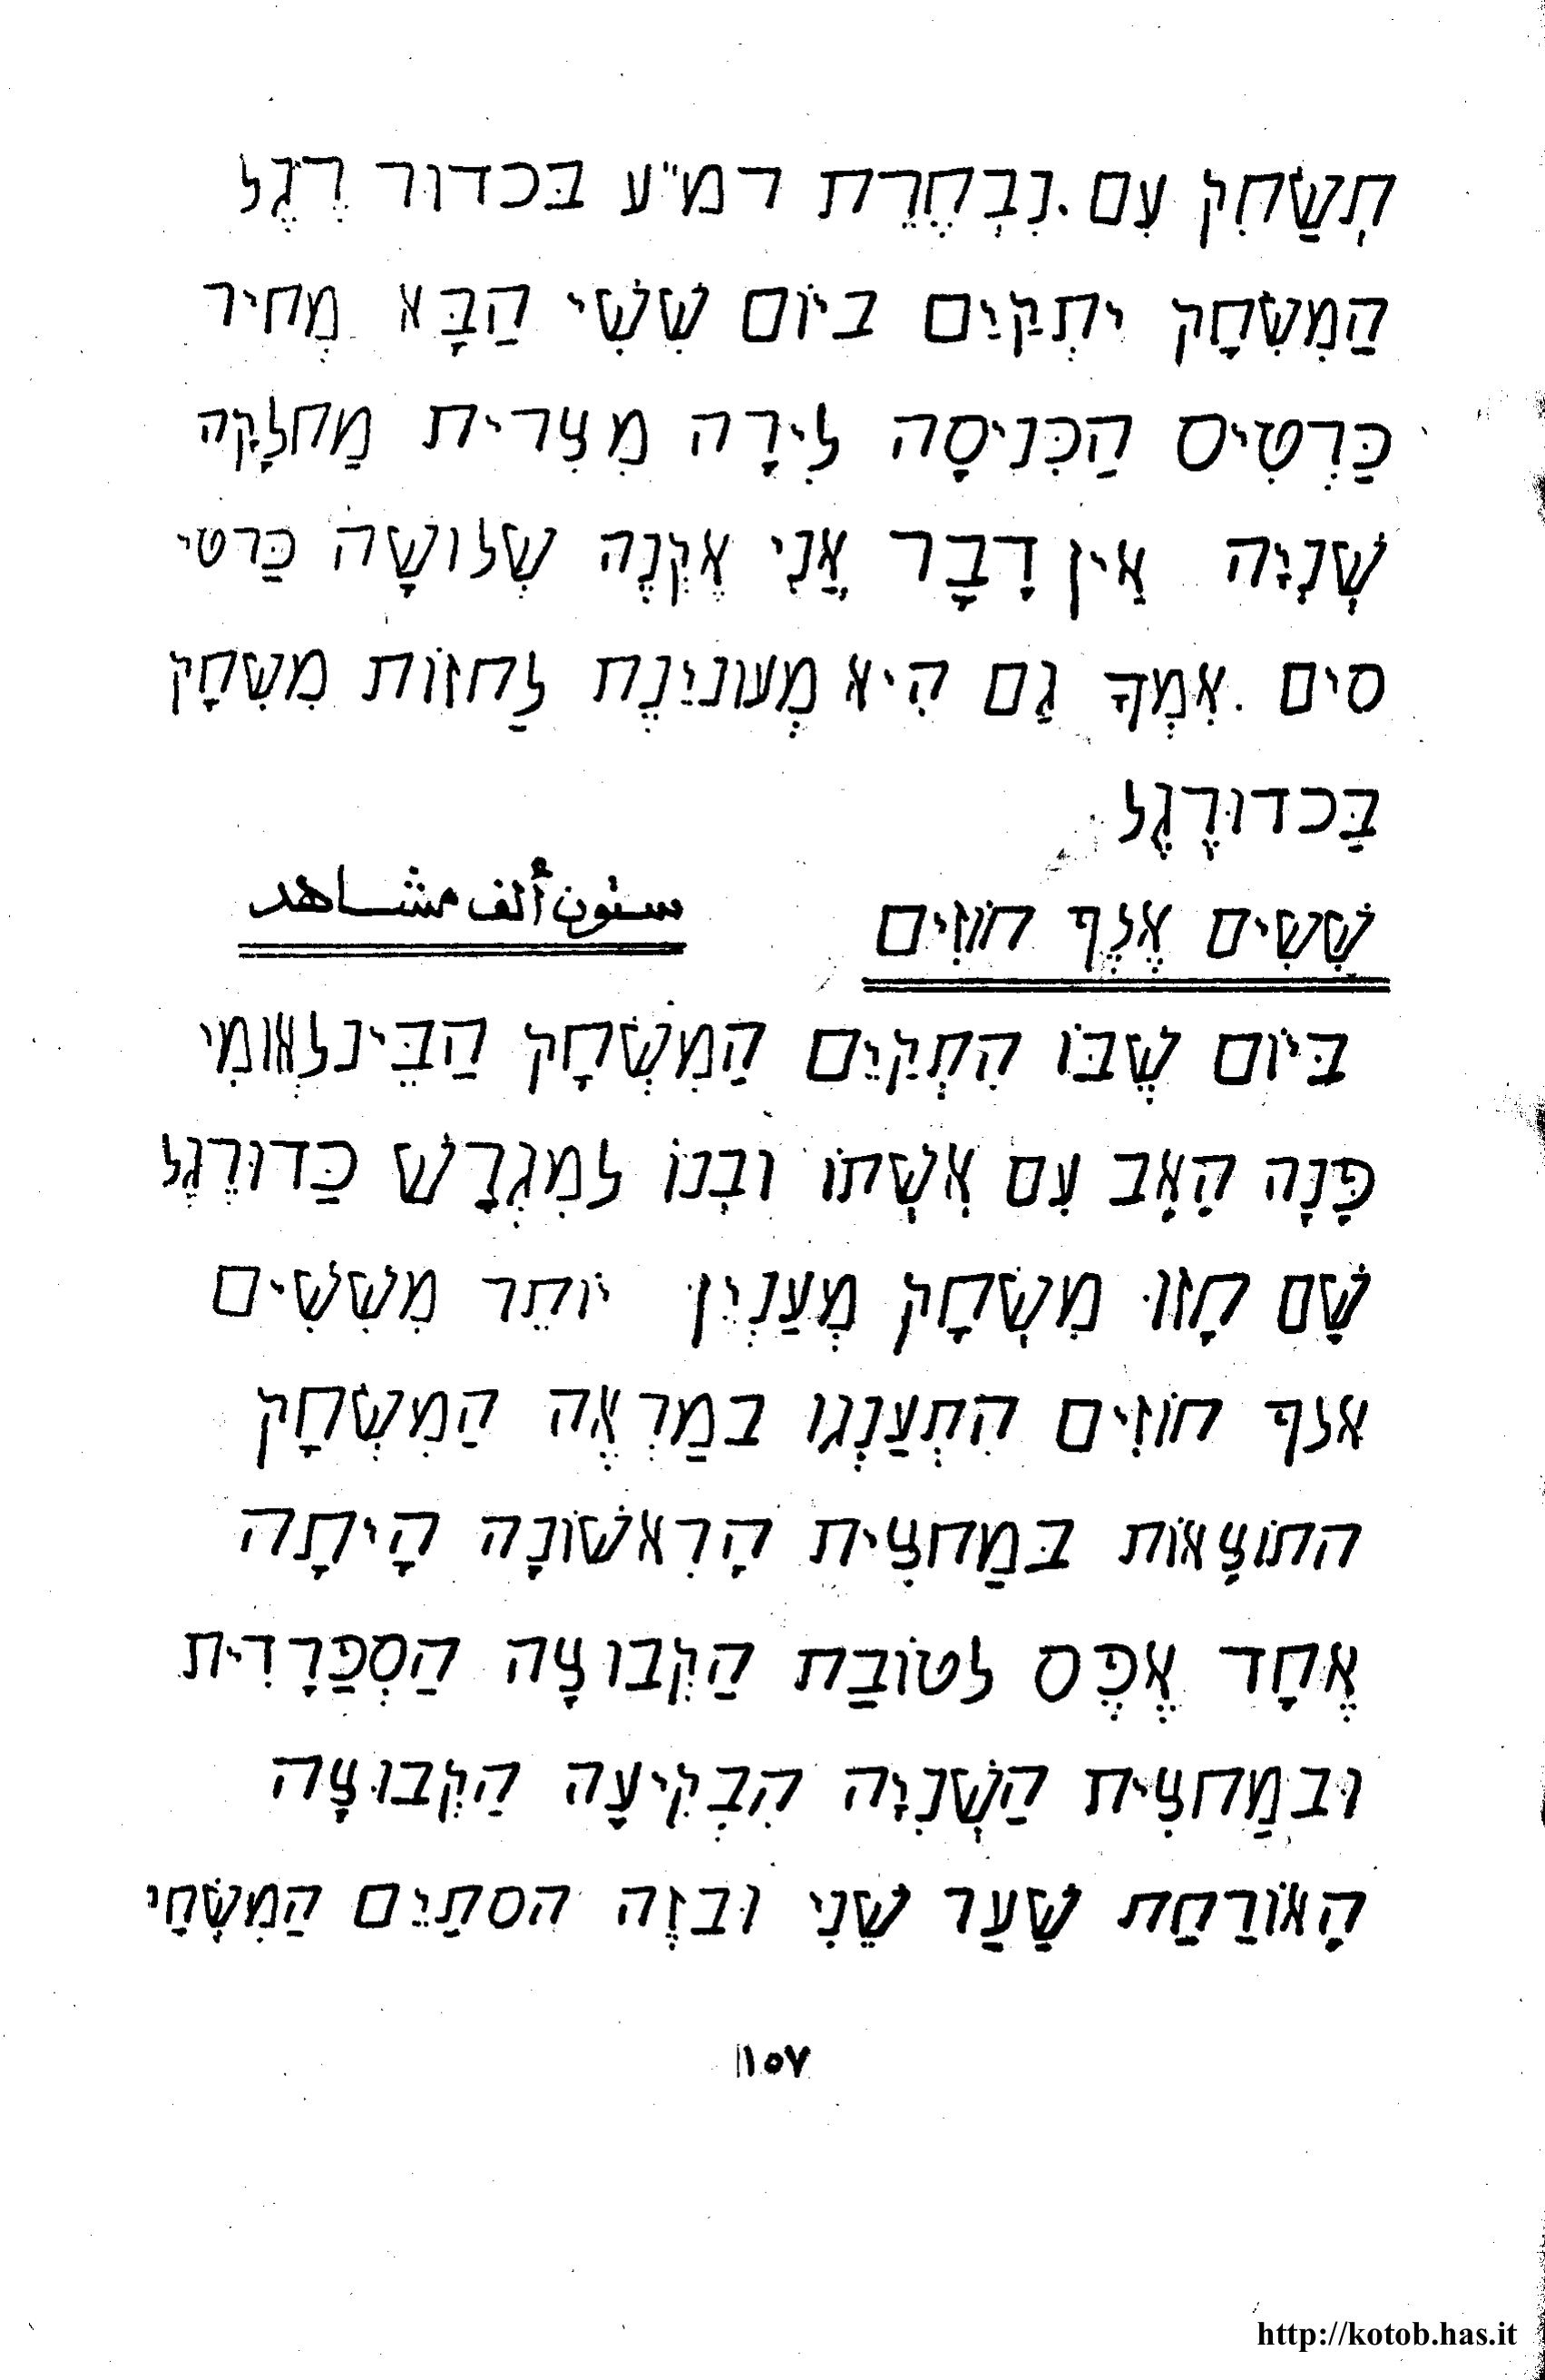 תְשַׂחִק עִם. נִבְחֶרֵת רמ"ע בּכדוּר רֶגֶל
הַמִשְׂחָק יתְקַיִם ביוֹם שִׁשִׁי הַבָּא מְחיר
כַּרְטִיס הַכְּנִיסָה לִירָה מִצְרית מַחלָקָה
שְׁנִיָּה אֵין דָבָר אֲנִי אֶקְנֶה שְׁלוֹשָׁה כַּרטי
סים. אִמְךָ גַם הִיא מְעוּנְיֵנֶת לַחזוֹת מִשְׂחָק
בַּכדוּרֶגֶל
שִׁשִׁים אֶלֶף חוֹזִים
ستون ألف مشاهد
בּיוֹם שֶׁבּוֹ הִתְקַיֵם הַמִשְׂחָק הַבֵּינלְאוּמִי
פָּנָה הָאָב עִם אִשְׁתוֹ וּבְנוֹ למִגְרָשׁ כַּדוּרֶגֶל
שָׁם חָזוּ מִשְׂחָק מְעַנְיֵן יוֹתֵר מִשִׁשִׁים
אלף חוֹזִים הִתְעַנְגוּ במַרְאֶה הַמִשְׂחָק
התוֹצָאוֹת בּמַחצִית הָרִאשׁוֹנָה הָיתָה
אֶחָד אֶפֶס לטוֹבַת הַקְבוּצָה הַסְפַרָדִית
וּבמַחצִית הַשְׁנִיָּה הִבְקִיעָה הַקְבוּצָה
הָאוֹרַחַת שַׁעַר שֵׁנִי וּבזֶה הסתַיֵם הַמִשְׂחָי
١٥٧
http://kotob.has.it